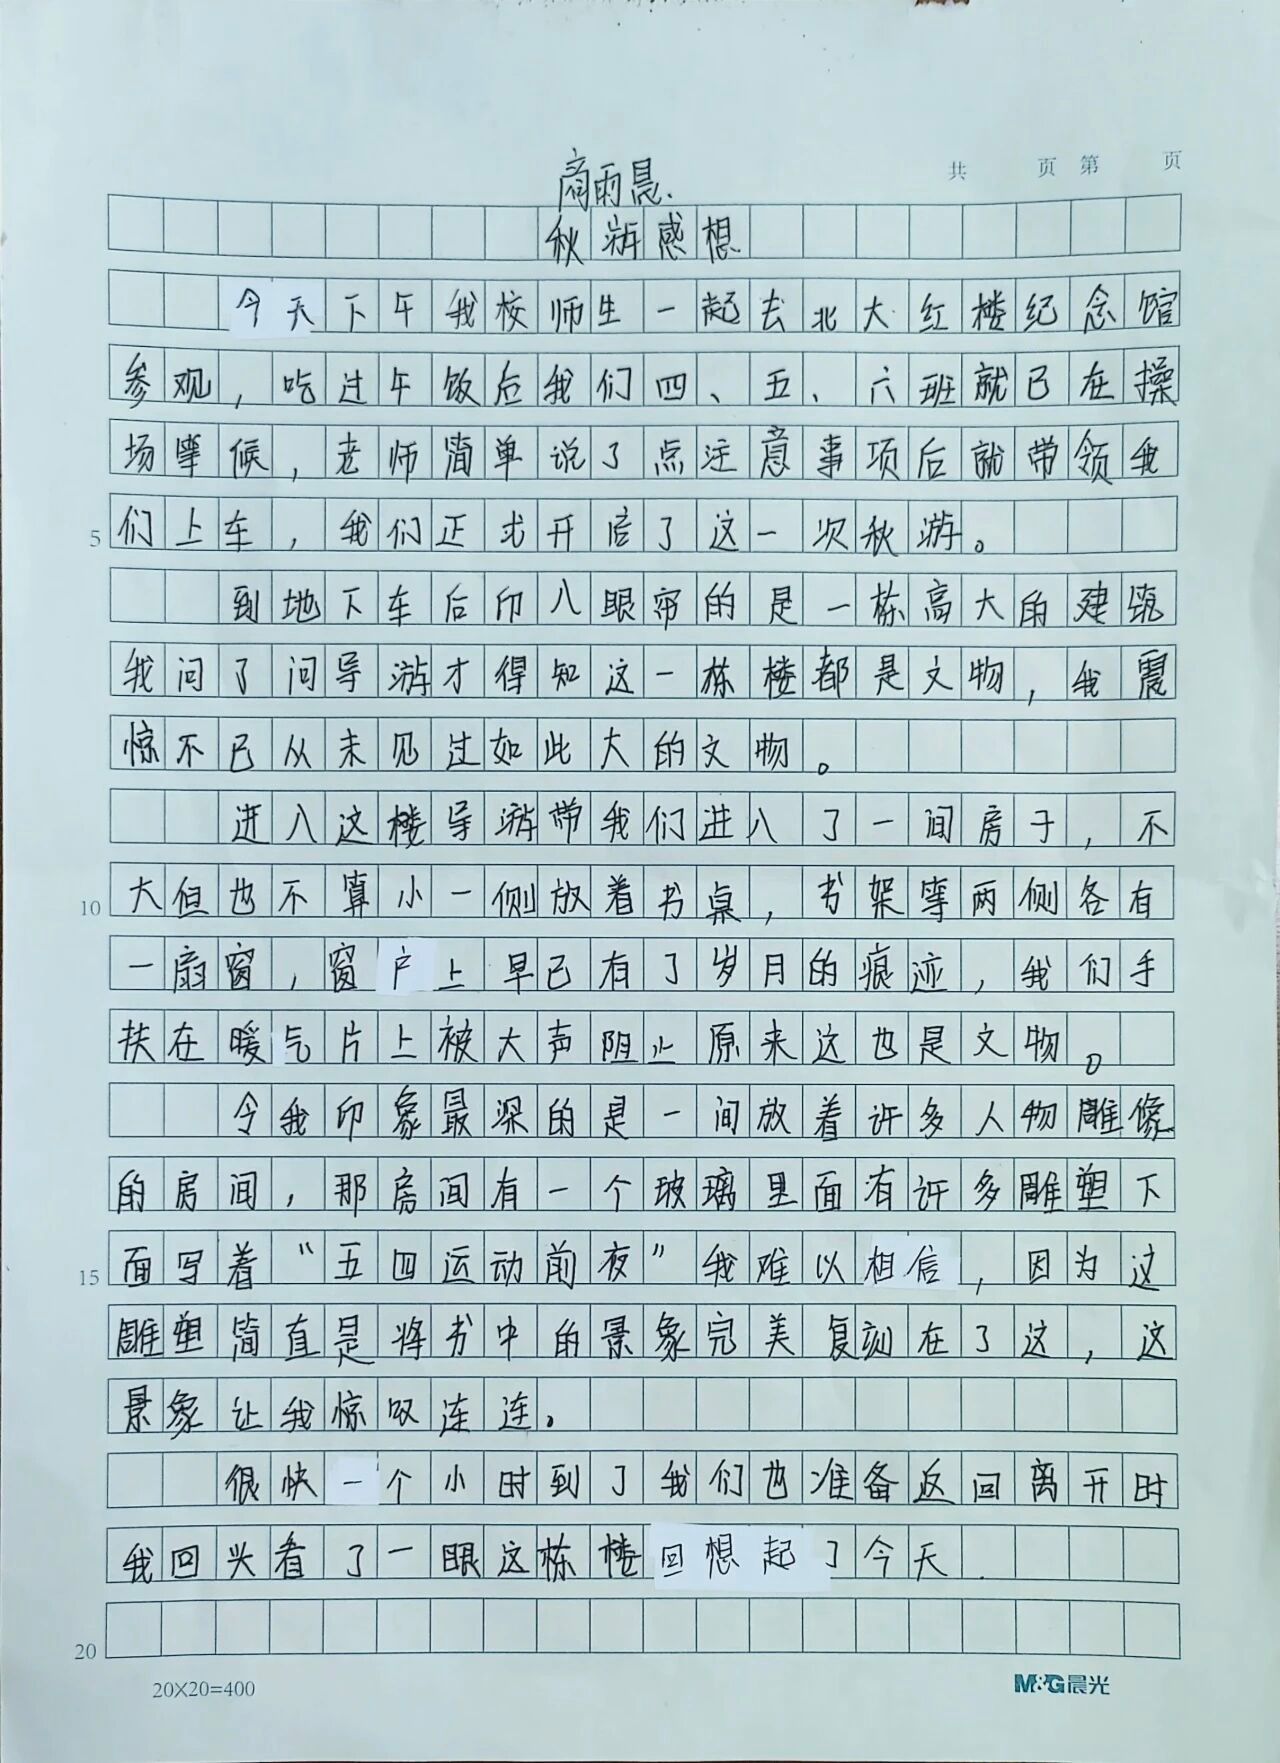 共 页 第 页
高雨晨.
秋游感想
今天下午我校师生一起去北大红楼纪念馆
参观，吃过午饭后我们四、五、六班就已在操
场等候，老师简单说了点注意事项后就带领我
5 们上车，我们正式开启了这一次秋游。
到地下车后印入眼帘的是一栋高大的建筑
我问了问导游才得知这一栋楼都是文物，我震
惊不已从未见过如此大的文物。
进入这楼导游带我们进入了一间房子，不
10 大但也不算小一侧放着书桌，书架等两侧各有
一扇窗，窗户上早已有了岁月的痕迹，我们手
扶在暖气片上被大声阻止原来这也是文物。
令我印象最深的是一间放着许多人物雕像
的房间，那房间有一个玻璃里面有许多雕塑下
15 面写着“五四运动前夜”我难以相信，因为这
雕塑简直是将书中的景象完美复刻在了这，这
景象让我惊叹连连。
很快一个小时到了我们也准备返回离开时
我回头看了一眼这栋楼回想起了今天.
20
20×20=400 M&G晨光